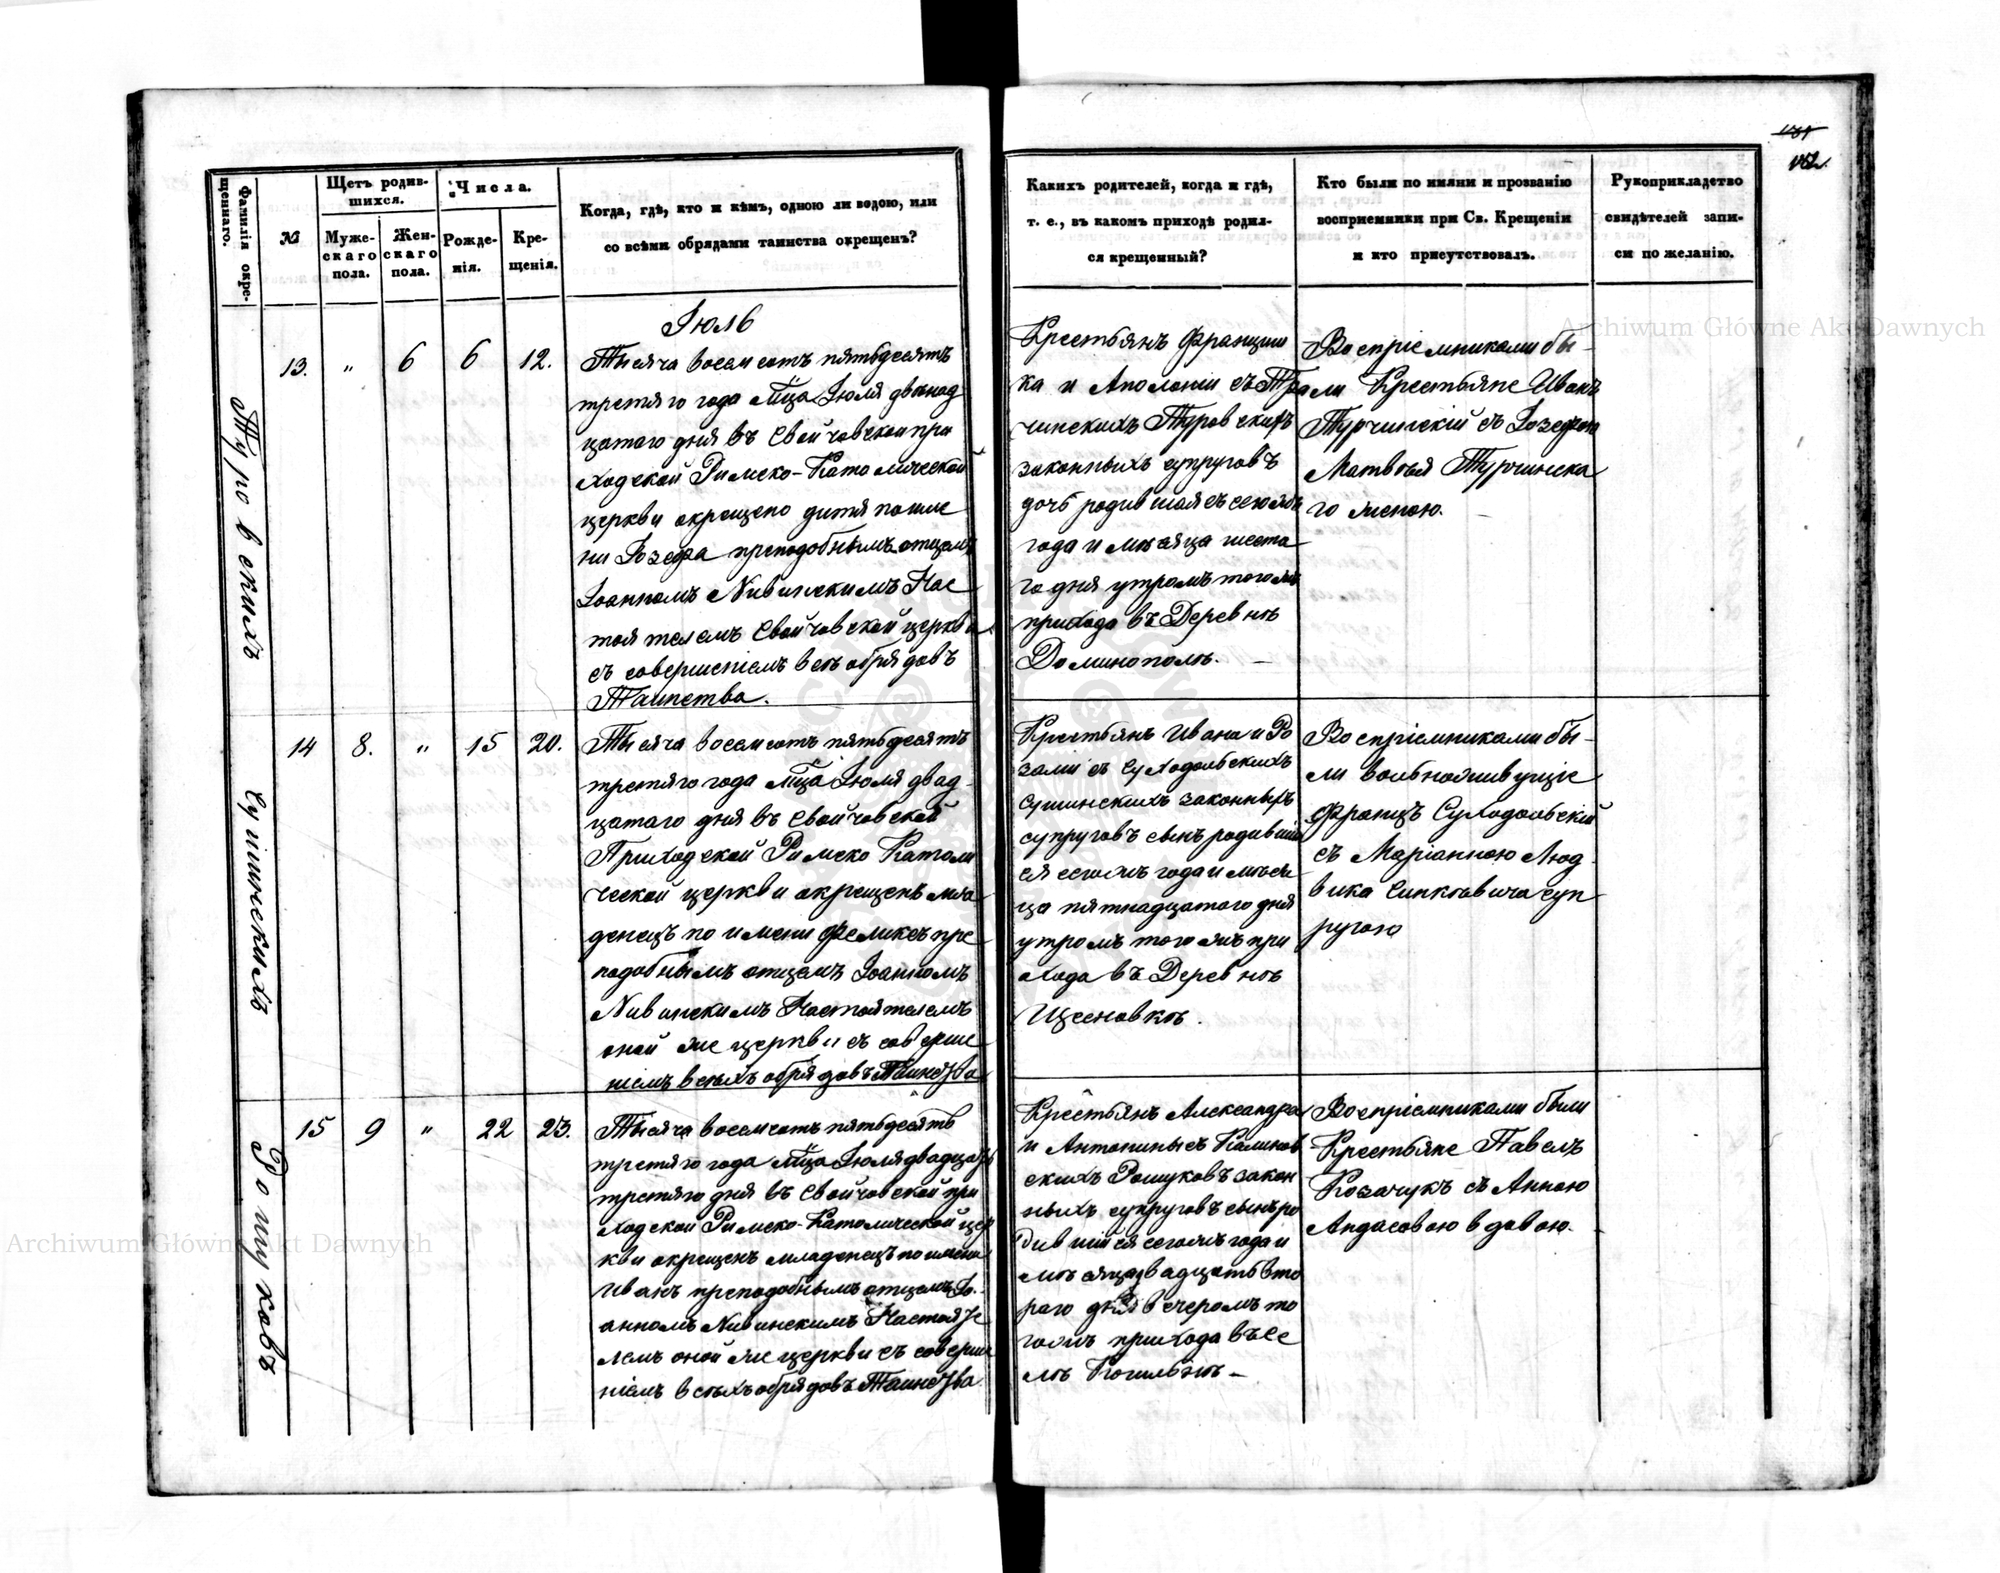 131
132
Фамилія окре-
щеннаго.
№
Щетъ родив-
шихся.
Муже-
скаго
пола.
Жен-
скаго
пола.
Числа.
Рожде-
нія.
Кре-
щенія.
Когда, гдѣ, кто и кѣмъ, одною ли водою, или
со всѣми обрядами таинства окрещенъ?
Какихъ родителей, когда и гдѣ,
т. е., въ какомъ приходѣ родил-
ся крещенный?
Кто были по имяни и прозванію
восприемники при Св. Крещеніи
и кто присутствовалъ.
Рукоприкладство
свидѣтелей запи-
си по желанію.
Іюль
Туровскихъ
13. " 6 6 12.
Тысяча восемсотъ пятьдесятъ
третяго года мца Іюля двѣнад
цатаго дня въ Свойчовской при
ходской Римско-Католической
церкви окрещено дитя по име
ни Іозефа преподобнымъ отцемъ
Іоанномъ Нивинскимъ Нас
тоятелемъ Свойчовской церкви
съ совершеніемъ всѣ обрядовъ
Таинства.
Крестьянъ Францыш
ка и Аполоніи съ Тур
чинскихъ Туровскихъ
законныхъ супруговъ
дочь родившаясь сего жъ
года и мѣсяца шеста
го дня утромъ того жъ
прихода въ Деревнѣ
Доминополѣ. —
Воспріемниками бы-
ли Крестьяне Иванъ
Турчинскій съ Іозефою
Матвѣя Турчинска
го женою.
Сушинскихъ
14 8. " 15 20.
Тысяча восемсотъ пятьдесятъ
третяго года мца Іюля двад-
цатаго дня въ Свойчовской
Приходской Римско Католи
ческой церкви окрещенъ мла
денецъ по имени Феликсъ пре
подобнымъ отцемъ Іоанномъ
Нивинскимъ Настоятелемъ
оной же церкви съ соверше
ніемъ всѣхъ обрядовъ Таинства
Крестьянъ Ивана и Ро
заліи съ Суходольскихъ
Сушинскихъ законныхъ
супруговъ сынъ родившій
ся сегожъ года и мѣся
ца пятнадцатого дня
утромъ того жъ при
хода въ Деревнѣ
Щесновкѣ.
Воспріемниками бы-
ли вольноживущіе
Францъ Суходольскій
съ Маріанною Люд
вика Синкѣвича суп
ругою
Рошуковъ
15 9 " 22 23.
Тысяча восемсотъ пятьдесятъ
третяго года мца Іюля двадцать
третяго дня въ Свойчовской при
ходской Римско-Католической цер
кви окрещенъ младенецъ по имени
Иванъ преподобнымъ отцемъ Іо-
анномъ Нивинскимъ Настояте
лемъ оной же церкви съ соверше
ніемъ всѣхъ обрядовъ Таинства
Крестьянъ Александра
и Антонины съ Калинов
скихъ Рошуковъ закон
ныхъ супруговъ сынъ ро
дившійся сегожъ года и
мѣсяца двадцать вто
раго дня вечеромъ то
гожъ прихода въ Се
лѣ Когильнѣ —
Воспріемниками были
Крестьяне Павелъ
Козачукъ съ Анною
Андасовою вдовою.
Archiwum Główne Akt Dawnych
Archiwum Główne Akt Dawnych